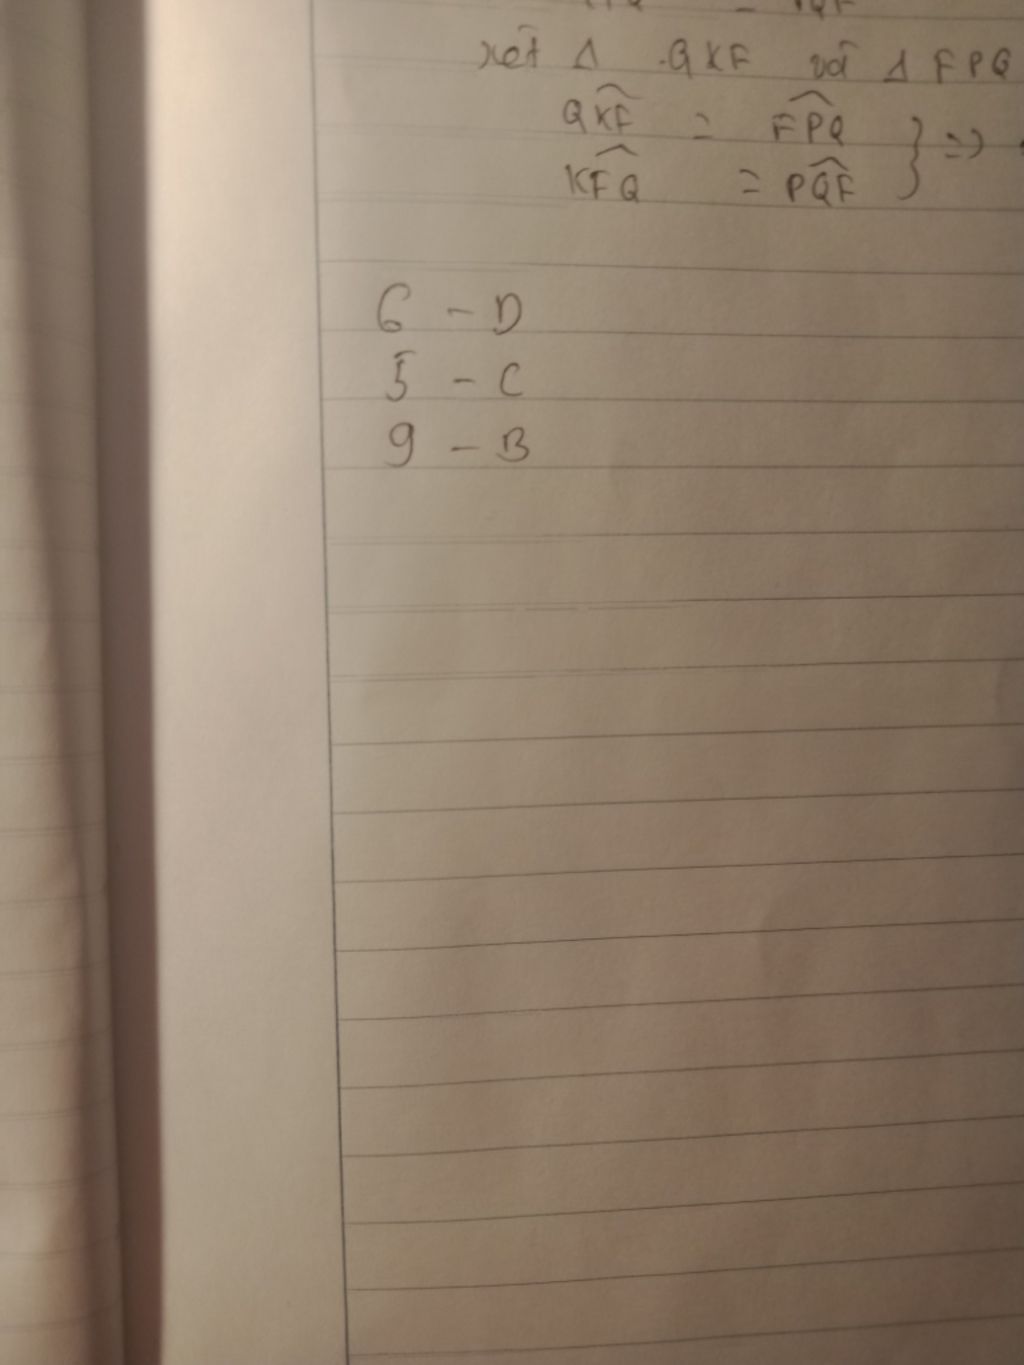 xét Δ QKF và Δ FPQ
QKF = FPQ } =>
KFQ = PQF
6 - D
5 - C
9 - B